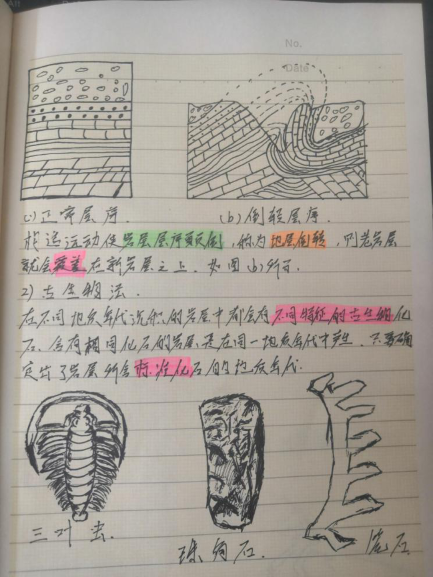 No.
Date
(a) 正常层序
(b) 倒转层序
构造运动使岩层层序颠倒,称为地层倒转,则老岩层
就会覆盖在新岩层之上,如图(b)所示.
2) 古生物法.
在不同地质年代沉积的岩层中都会有不同特征的古生物化
石,含有相同化石的岩层是在同一地质年代中产生,只要确
定出了岩层所含标准化石的地质年代.
三叶虫.
珠角石.
笔石.